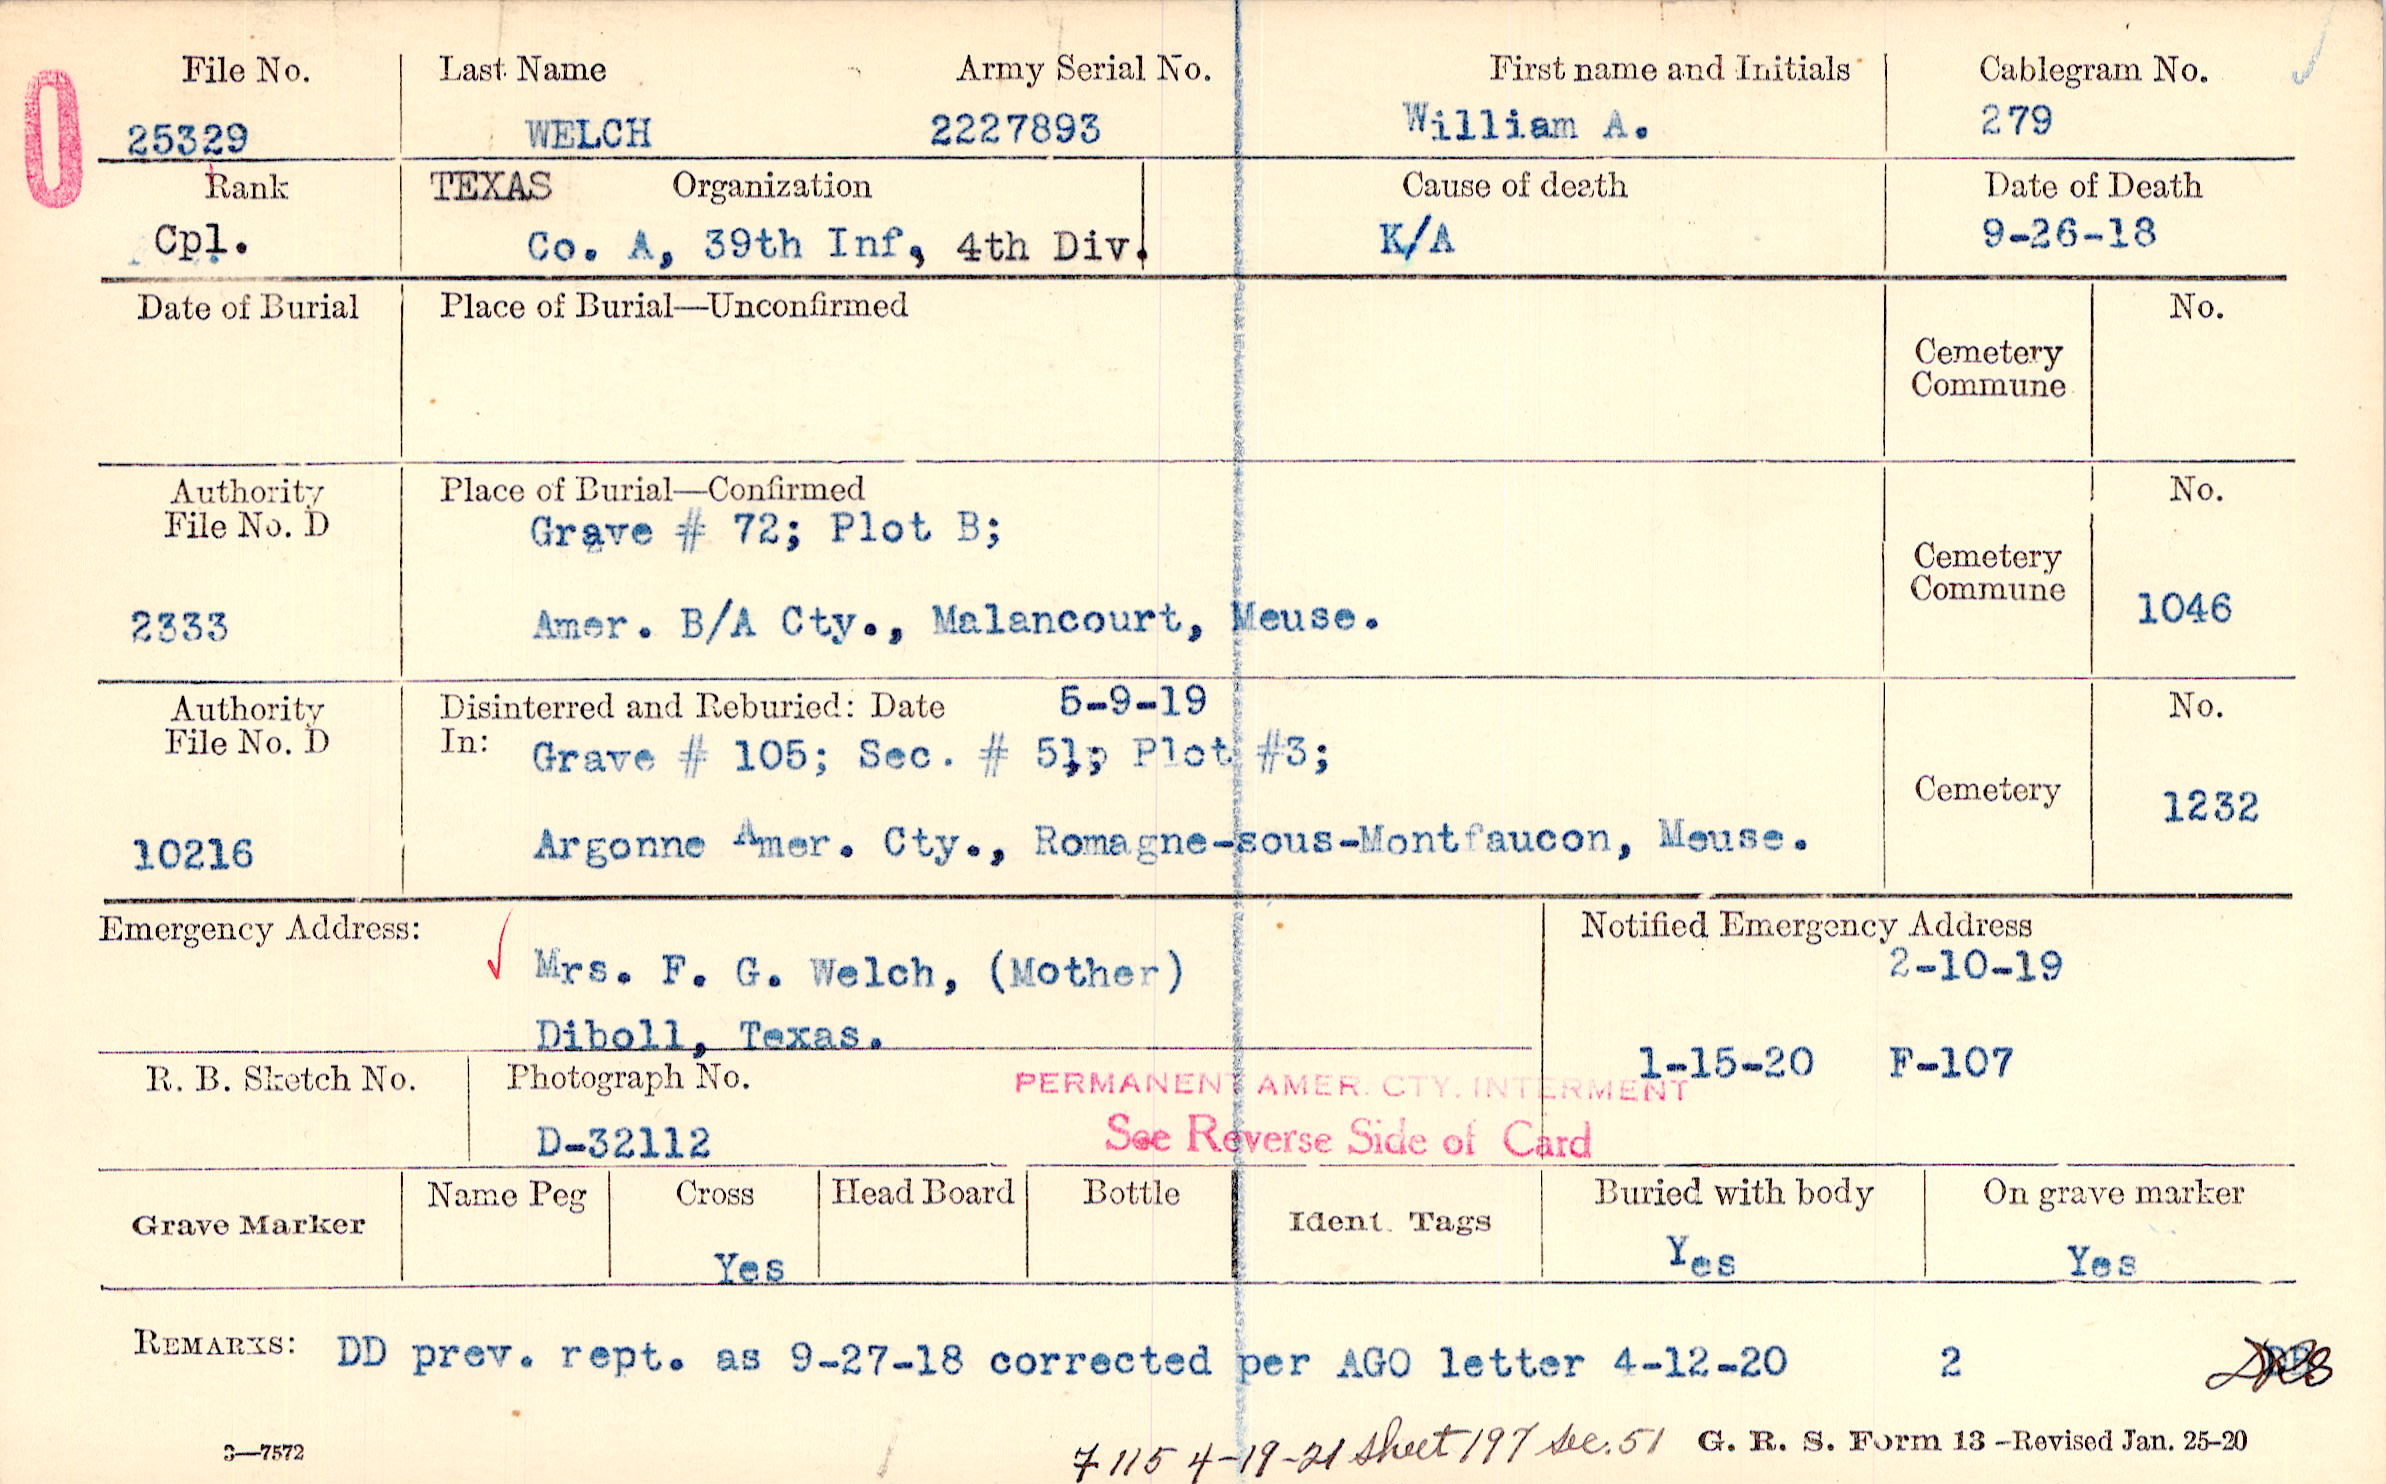 File No. Last Name Army Serial No. First name and Initials Cablegram No.
25329 WELCH 2227893 William A. 279
Rank TEXAS Organization Cause of death Date of Death
Cpl. Co. A, 39th Inf, 4th Div. K/A 9-26-18
Date of Burial Place of Burial—Unconfirmed No.
Cemetery
Commune
Authority Place of Burial—Confirmed No.
File No. D Grave # 72; Plot B;
Cemetery
Commune
2333 Amer. B/A Cty., Malancourt, Meuse. 1046
Authority Disinterred and Reburied: Date 5-9-19 No.
File No. D In: Grave # 105; Sec. # 51; Plot #3;
Cemetery
10216 Argonne Amer. Cty., Romagne-sous-Montfaucon, Meuse. 1232
Emergency Address: Notified Emergency Address
Mrs. F. G. Welch, (Mother) 2-10-19
Diboll, Texas.
1-15-20 F-107
R. B. Sketch No. Photograph No. PERMANENT AMER. CTY. INTERMENT
D-32112 See Reverse Side of Card
Grave Marker Name Peg Cross Head Board Bottle Ident. Tags Buried with body On grave marker
Yes Yes Yes
REMARKS: DD prev. rept. as 9-27-18 corrected per AGO letter 4-12-20 2
7115 4-19-21 sheet 197 sec. 51
3—7572 G. R. S. Form 13 -Revised Jan. 25-20